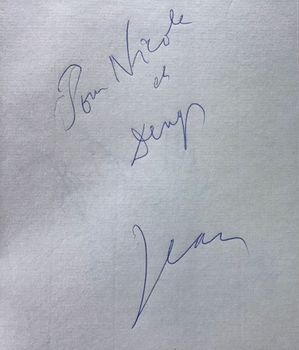 Pour Nicole
et
Serge
Jean